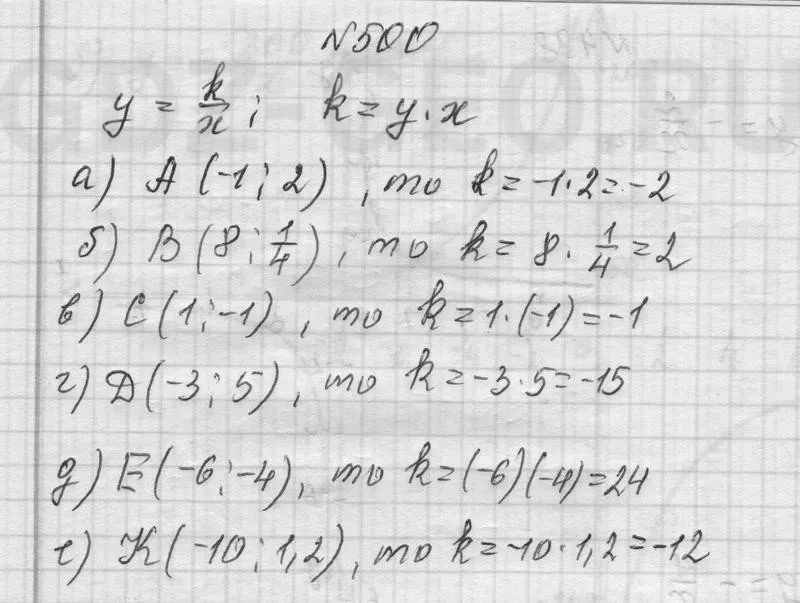 №500
y = k/x ; k = y · x
а) A (-1 ; 2) , то k = -1 · 2 = -2
б) B (8 ; 1/4) , то k = 8 · 1/4 = 2
в) C (1 ; -1) , то k = 1 · (-1) = -1
г) D (-3 ; 5) , то k = -3 · 5 = -15
д) E (-6 ; -4) , то k = (-6)(-4) = 24
е) K (-10 ; 1,2) , то k = -10 · 1,2 = -12